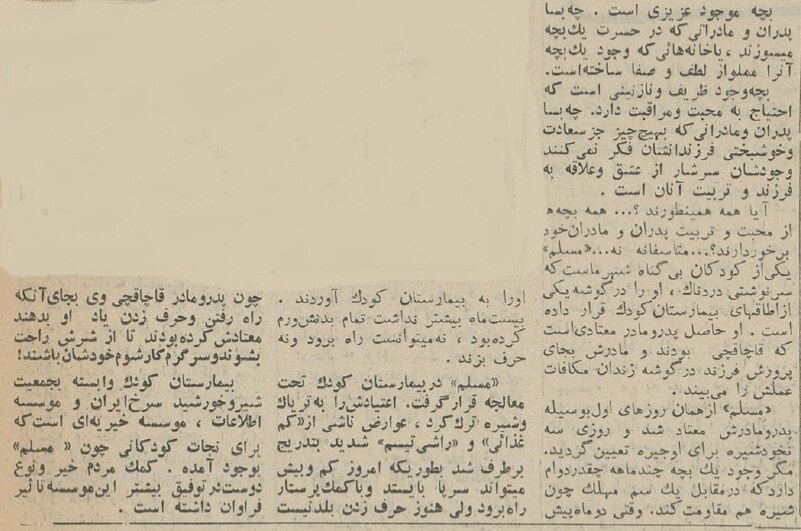 بچه موجود عزیزی است . چه‌بسا
پدران و مادرانی‌که در حسرت یك‌بچه
میسوزند ، یاخانه‌هائی‌که وجود یك‌بچه
آنرا مملواز لطف و صفا ساخته‌است.
بچه‌وجود ظریف ونازنینی است که
احتیاج به محبت ومراقبت دارد. چه‌بسا
پدران ومادرانی‌که بهیچ‌چیز جز سعادت
وخوشبختی فرزندانشان فکر نمی‌کنند
وجودشان سرشار از عشق وعلاقه به
فرزند و تربیت آنان است .
آیا همه همینطورند ؟... همه بچه‌ها
از محبت و تربیت پدران و مادران‌خود
برخوردارند؟...متاسفانه نه...«مسلم»
یکی‌از کودکان بی‌گناه شهرماست‌که
سرنوشتی دردناك ، او را درگوشه‌یکی
ازاطاقهای بیمارستان‌کودك قرار داده
است . او حاصل پدرومادر معتادی‌است
که قاچاقچی بودند و مادرش بجای
پرورش فرزند درگوشه زندان مکافات
عملش را می‌بیند .
«مسلم» ازهمان روزهای اول‌بوسیله
پدرومادرش معتاد شد و روزی سه
نخودشیره برای اوجیره تعیین‌گردید.
مگر وجود یك بچه چندماهه چقدردوام
داردکه درمقابل یك سم مهلك چون
شیره هم مقاومت‌کند. وقتی دوماه‌پیش
اورا به بیمارستان کودك آوردند .
بیست‌ماه بیشتر نداشت تمام بدنش‌ورم
کرده‌بود ، نه‌میتوانست راه برود ونه
حرف بزند .
«مسلم» دربیمارستان کودك تحت
معالجه قرارگرفت. اعتیادش‌را به‌تریاك
وشیره ترك‌کرد ، عوارض ناشی از«کم
غذائی» و «راشی‌تیسم» شدید بتدریج
برطرف شد بطوریکه امروز کم وبیش
میتواند سرپا بایستد وباکمك‌پرستار
راه‌برود ولی هنوز حرف زدن بلدنیست
چون پدرومادر قاچاقچی وی بجای‌آنکه
راه رفتن وحرف زدن یاد او بدهند
معتادش کرده‌بودند تا از شرش راحت
بشوندوسرگرم‌کارشوم‌خودشان‌باشند!
بیمارستان کودك وابسته بجمعیت
شیروخورشید سرخ‌ایران و موسسه
اطلاعات ، موسسه خیریه‌ای است‌که
برای نجات کودکانی چون « مسلم»
بوجود آمده . کمك مردم خیر ونوع
دوست‌درتوفیق بیشتر این‌موسسه‌تاثیر
فراوان داشته است .